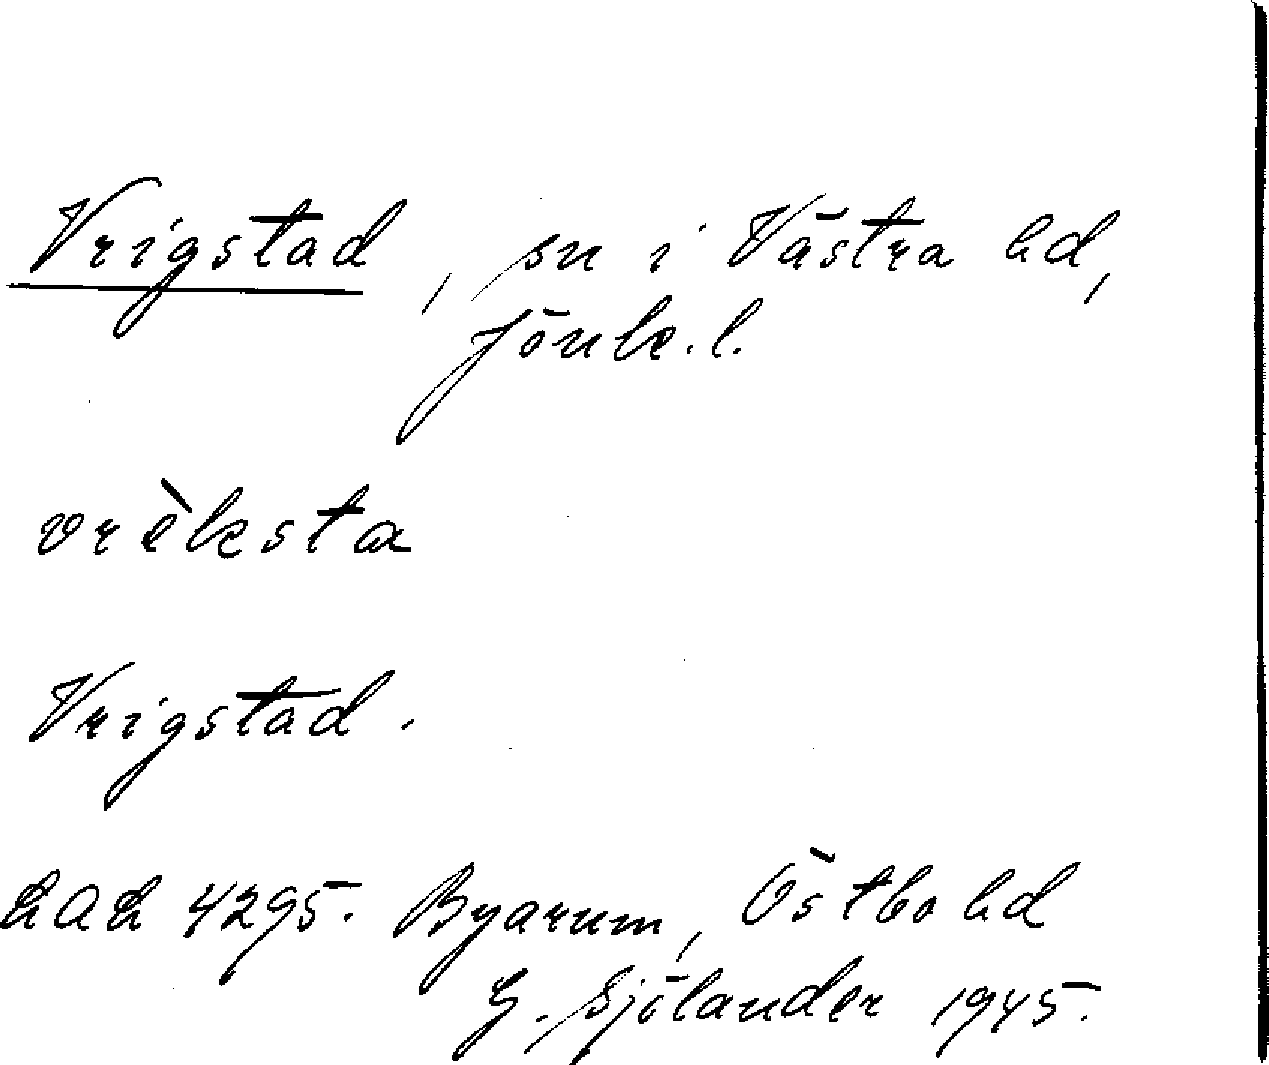 Vrigstad, sn i Västra hd,
Jönk.l.
vrèksta
Vrigstad.
4295. Byarum, Östbo hd
G. Sjölander 1945.